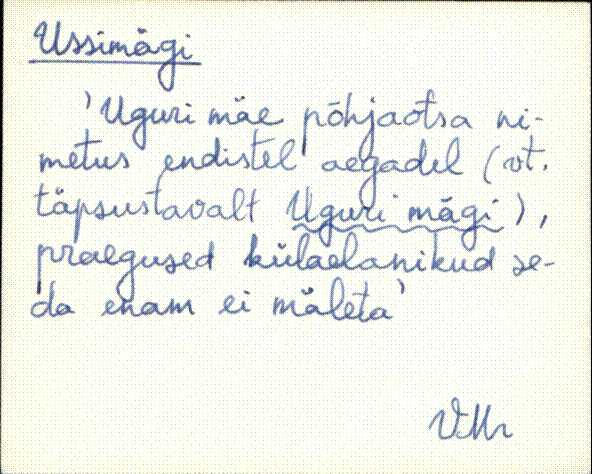 Ussimägi
'Uguri mäe põhjaotsa ni-
metus endistel aegadel (vt.
täpsustavalt Uguri mägi),
praegused külaelanikud se-
da enam ei mäleta'